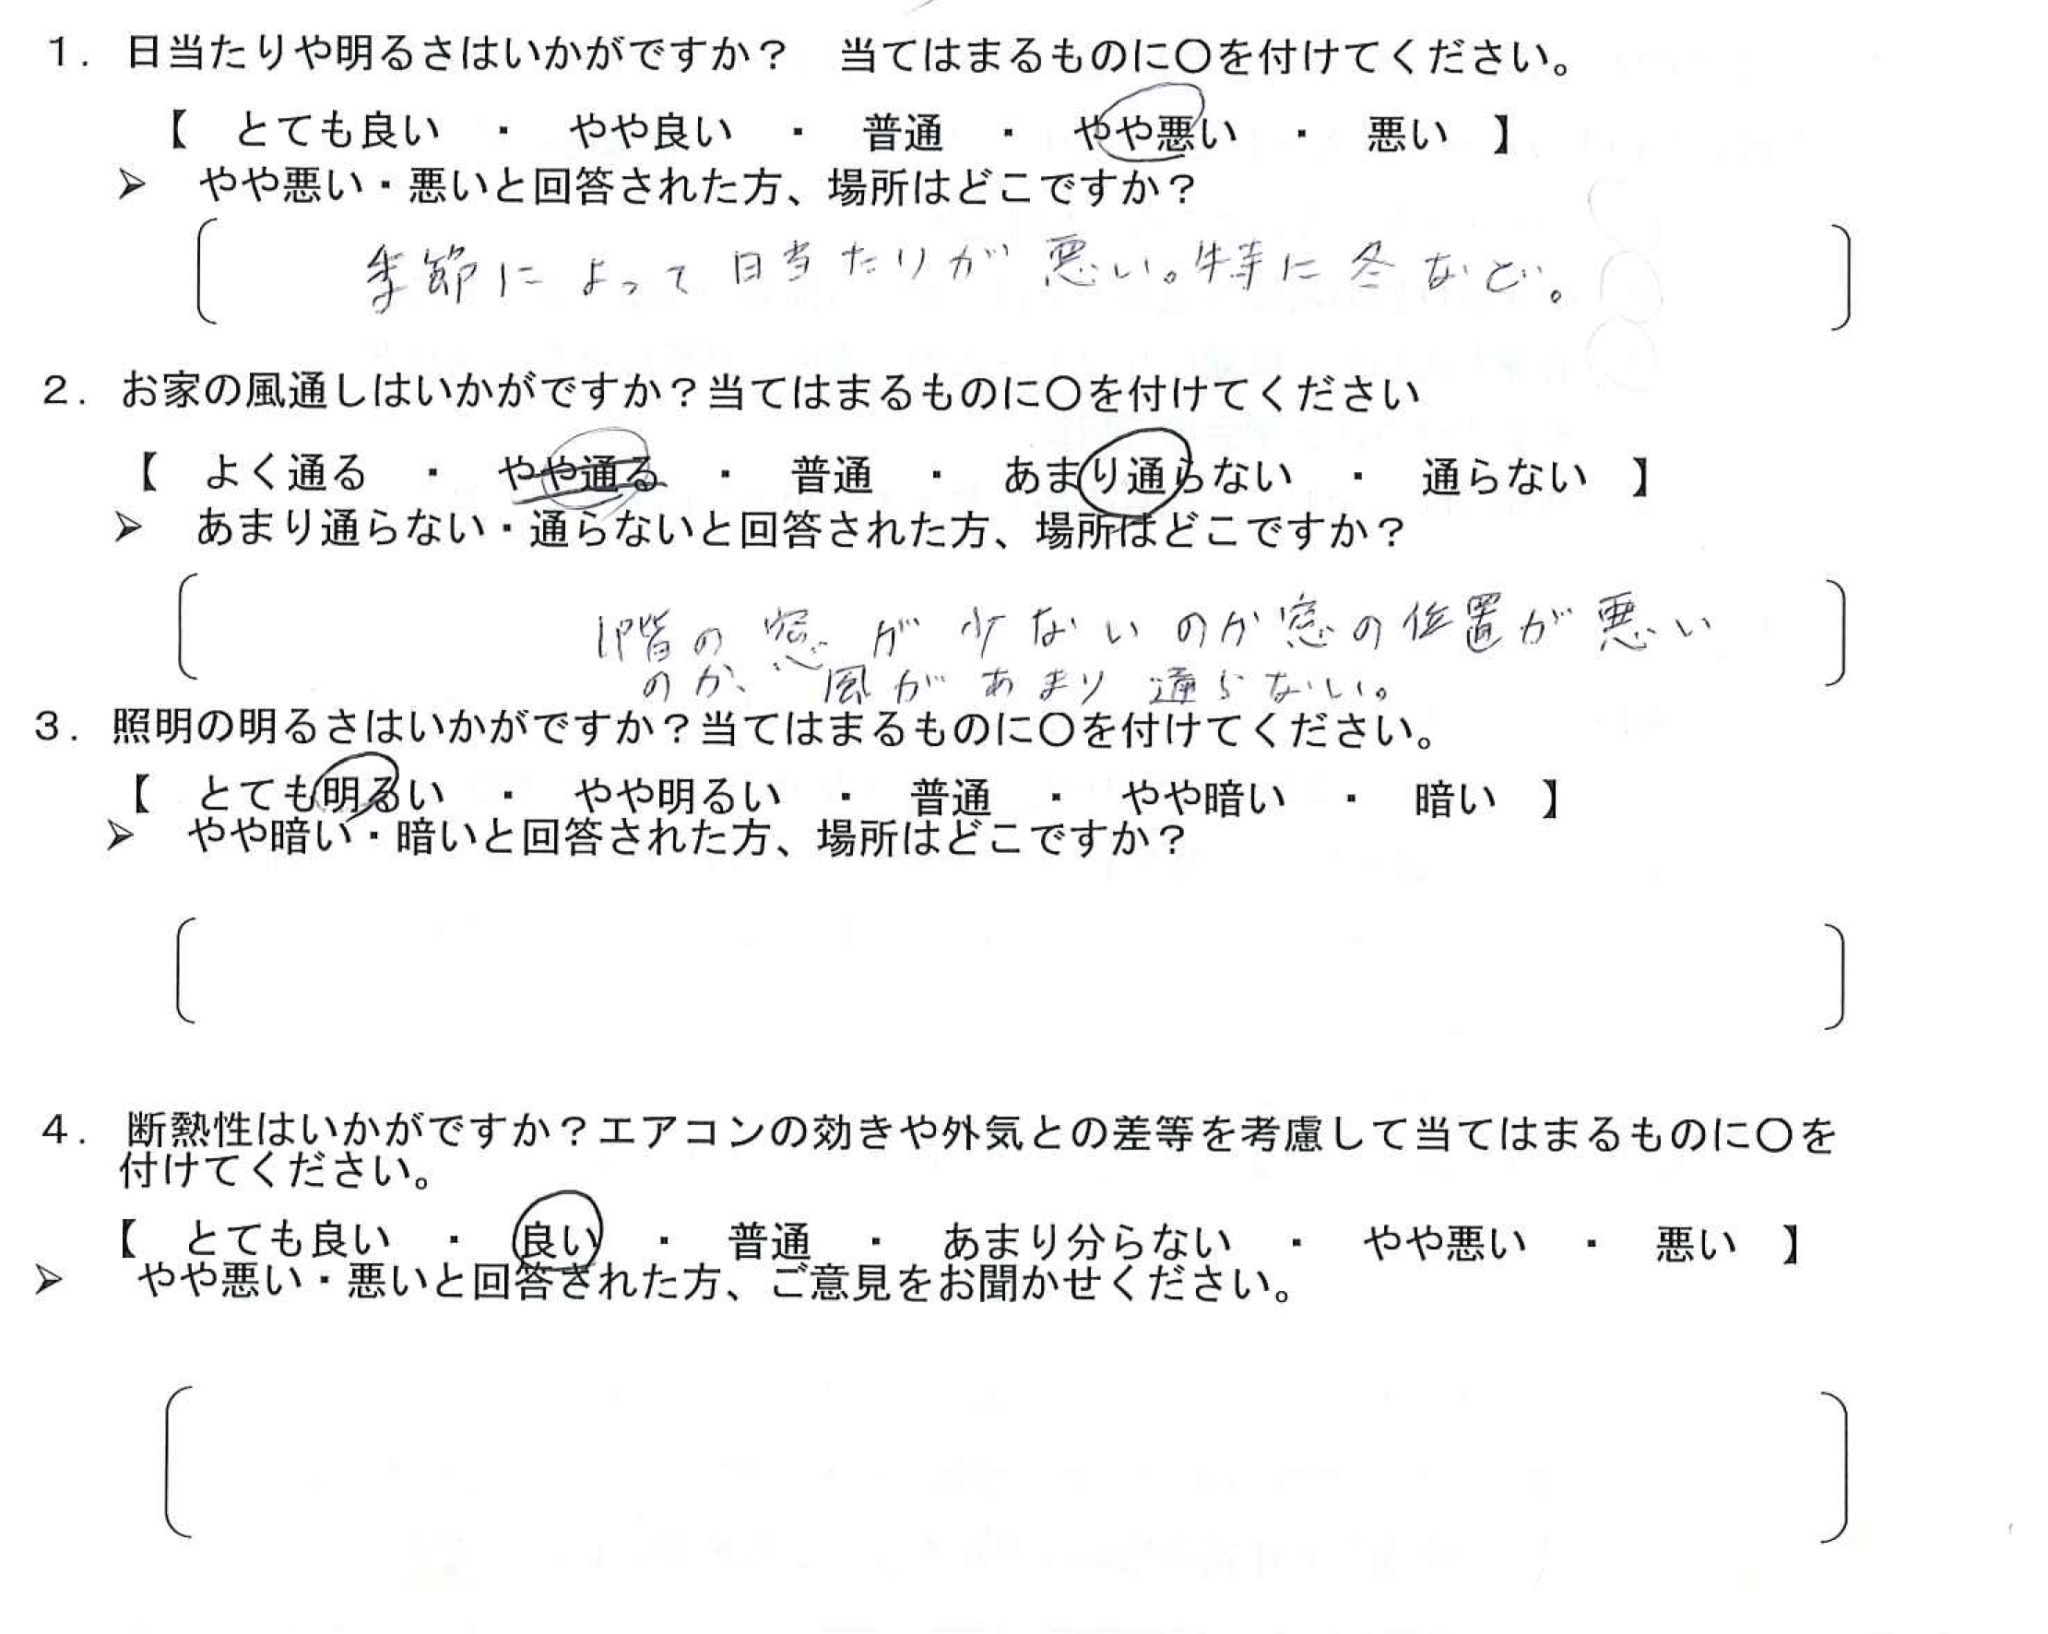 １．日当たりや明るさはいかがですか？　当てはまるものに〇を付けてください。
【　とても良い　・　やや良い　・　普通　・　やや悪い　・　悪い　】
➢　やや悪い・悪いと回答された方、場所はどこですか？
季節によって日当たりが悪い。特に冬など。
２．お家の風通しはいかがですか？当てはまるものに〇を付けてください
【　よく通る　・　やや通る　・　普通　・　あまり通らない　・　通らない　】
➢　あまり通らない・通らないと回答された方、場所はどこですか？
1階の窓が少ないのか窓の位置が悪い
のか、風があまり通らない。
３．照明の明るさはいかがですか？当てはまるものに〇を付けてください。
【　とても明るい　・　やや明るい　・　普通　・　やや暗い　・　暗い　】
➢　やや暗い・暗いと回答された方、場所はどこですか？
４．断熱性はいかがですか？エアコンの効きや外気との差等を考慮して当てはまるものに〇を
付けてください。
【　とても良い　・　良い　・　普通　・　あまり分らない　・　やや悪い　・　悪い　】
➢　やや悪い・悪いと回答された方、ご意見をお聞かせください。